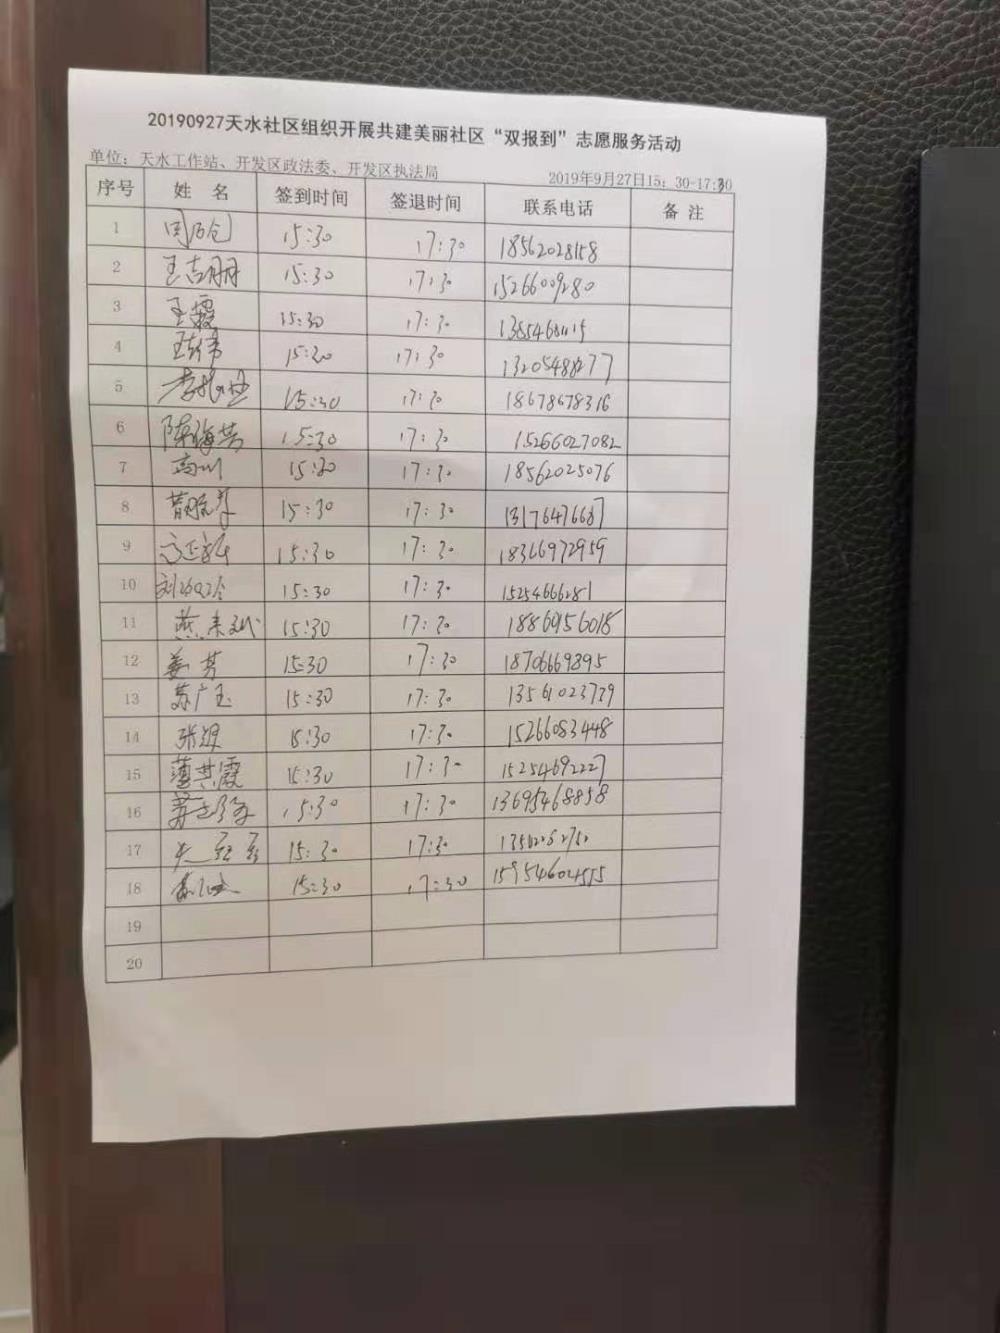 20190927天水社区组织开展共建美丽社区“双报到”志愿服务活动
单位：天水工作站、开发区政法委、开发区执法局 2019年9月27日15：30-17:30
序号 姓 名 签到时间 签退时间 联系电话 备 注
1 15:30 17:30 18562028158
2 王志朋 15:30 17:30 15266009280
3 王霞 15:30 17:30
4 15:30 17:30 13205488277
5 15:30 17:30 18678678316
6 陈海芸 15:30 17:30 15266027082
7 高川 15:30 17:30 18562025076
8 15:30 17:30 13176476687
9 15:30 17:30 18366972959
10 15:30 17:30 15254666281
11 燕来斌 15:30 17:30 18860156018
12 姜芳 15:30 17:30 18706669895
13 苏广玉 15:30 17:30 13561023739
14 15:30 17:30 15266083448
15 薄其霞 15:30 17:30 15254692227
16 15:30 17:30 13695468858
17 15:30 17:30
18 15:30 17:30 15954604555
19
20